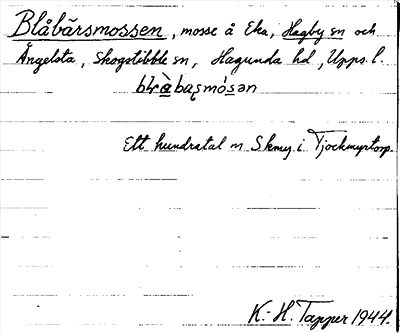 Blåbärsmossen, mosse å Eka, Hagby sn och
Ängelsta, Skogstibble sn, Hagunda hd, Upps. l.
Ett hundratal m Skmy. i Tjockmyrtorp.
K.-H. Tapper 1944.